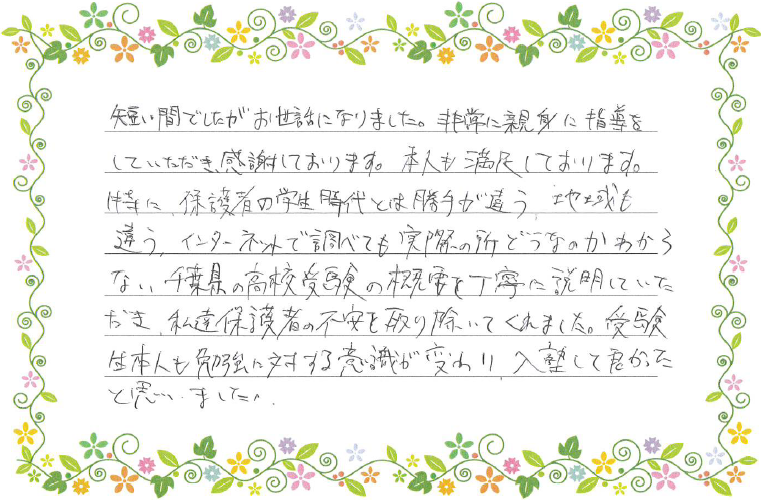 短い間でしたがお世話になりました。非常に親身に指導を
していただき、感謝しております。本人も満足しております。
特に、保護者の学生時代とは勝手が違う、地域も
違う、インターネットで調べても実際の所どうなのかわから
ない、千葉県の高校受験の概要を丁寧に説明していた
だき、私達保護者の不安を取り除いてくれました。受験
生本人も勉強に対する意識が変わり、入塾して良かった
と思いました。